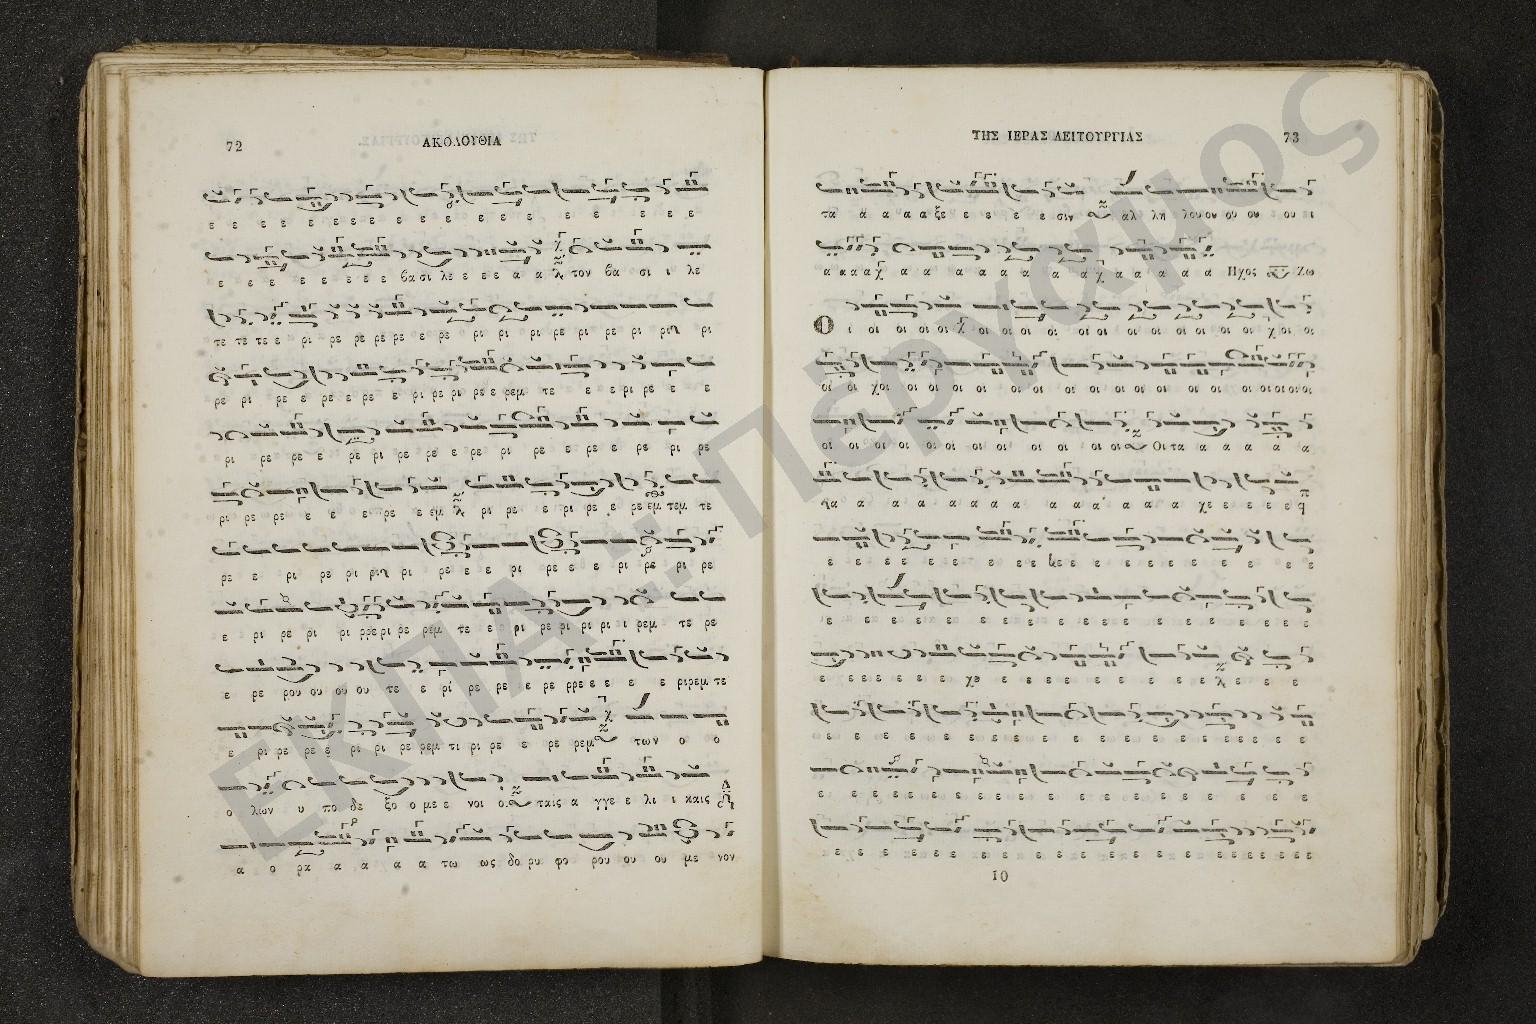 72
ΑΚΟΛΟΥΘΙΑ
ε ε ε ε ε ε ε ε ε ε ε ε ε ε ε ε
ε ε ε ε ε ε ε ε βα σι λε ε ε ε α α τον βα σι ι λε
τε τε τε ε ρι ρε ρε ρε ρε ε ρε ρι ρι ρι ρε ρι ρε ρι ρι
ρε ρι ρε ε ρε ρε ε ρε ε ρι ρε ρι ρε ε ρεμ τε ε ε ρι ρε ε ε
ρι ρε ρε ε ρε ρι ρε ρε ε ρε ρι ρε ε ρε ε ρε ρι ρε
ρι ρε ρε ε ε ε ρε ε εμ ρι ρε ε ρι ρε ε ρε εμ τεμ τε
ρε ε ρι ρε ρι ρι ρε ε ε ρι ρε ε ε ρι ρε ρι ρε
ε ρι ρε ρι ρι ρρε ρι ρε ρεμ τε ε ρι ρε ρι ρι ρι ι ρεμ τε ρε
ε ρε ρου ου ου ου τε ε ρι ρε ρε ε ρε ρρε ε ε ε ε ριρεμ τε
ε ρι ρε ρε ε ρι ρι ρε ρεμ τι ρι ρε ε ρε ρεμ των ο ο
ο λων υ πο δε ξο ο με ε νοι ο ταις α γγε ε λι ι καις
α ο ρα α α α α τω ως δο ρυ φο ρου ου ου με νον
ΤΗΣ ΙΕΡΑΣ ΛΕΙΤΟΥΡΓΙΑΣ
73
τα α α α α ξε ε ε ε ε σιν αλ λη λου ου ου ου ου ι
α α α α χ α α α α α α α χ α α α α α Ηχος Ζω
Οι ι οι οι οι οι χ οι οι οι οι οι οι οι οι οι οι οι χ οι οι
οι οι χοι οι οι οι οι οι οι οι οι οι οι οι οι οι οι οι οι οι
οι οι οι οι οι οι οι οι οι οι οι οι Οι τα α α α α α
α α α α α α α α α α α α α χε ε ε ε ε
ε ε ε ε ε ε ε ε ε ε ε ε ε ε ε ε ε ε
ε ε ε ε ε ε ε ε ε ε ε ε ε ε ε
ε ε ε ε ε ε ε χε ε ε ε ε ε ε ε ε ε ε ε ε
ε ε ε ε ε ε ε ε ε ε ε ε ε ε ε ε ε ε
ε ε ε ε ε ε ε ε ε ε ε ε ε ε ε ε ε
ε ε ε ε ε ε ε ε ε ε ε ε ε ε ε ε ε ε ε ε
10
ΕΚΠΑ: Πέργαμος